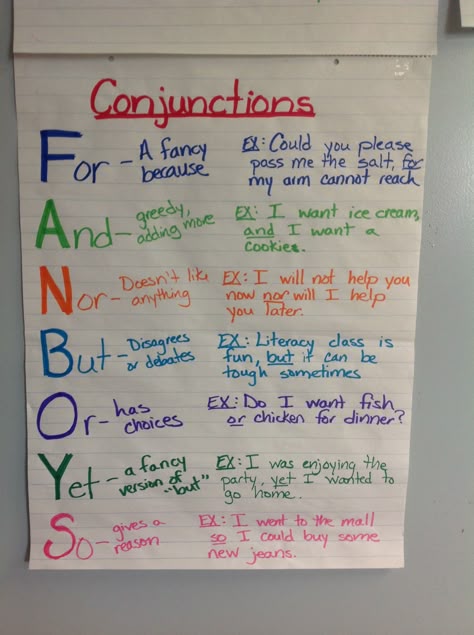 Conjunctions
For - A fancy because
EX: Could you please
pass me the salt, for
my arm cannot reach
And - greedy, adding more
EX: I want ice cream,
and I want a
cookies.
Nor - Doesn't like anything
EX: I will not help you
now nor will I help
you later.
But - Disagrees or debates
EX: Literacy class is
fun, but it can be
tough sometimes
Or - has choices
EX: Do I want fish
or chicken for dinner?
Yet - a fancy version of "but"
EX: I was enjoying the
party, yet I wanted to
go home.
So - gives a reason
EX: I went to the mall
so I could buy some
new jeans.